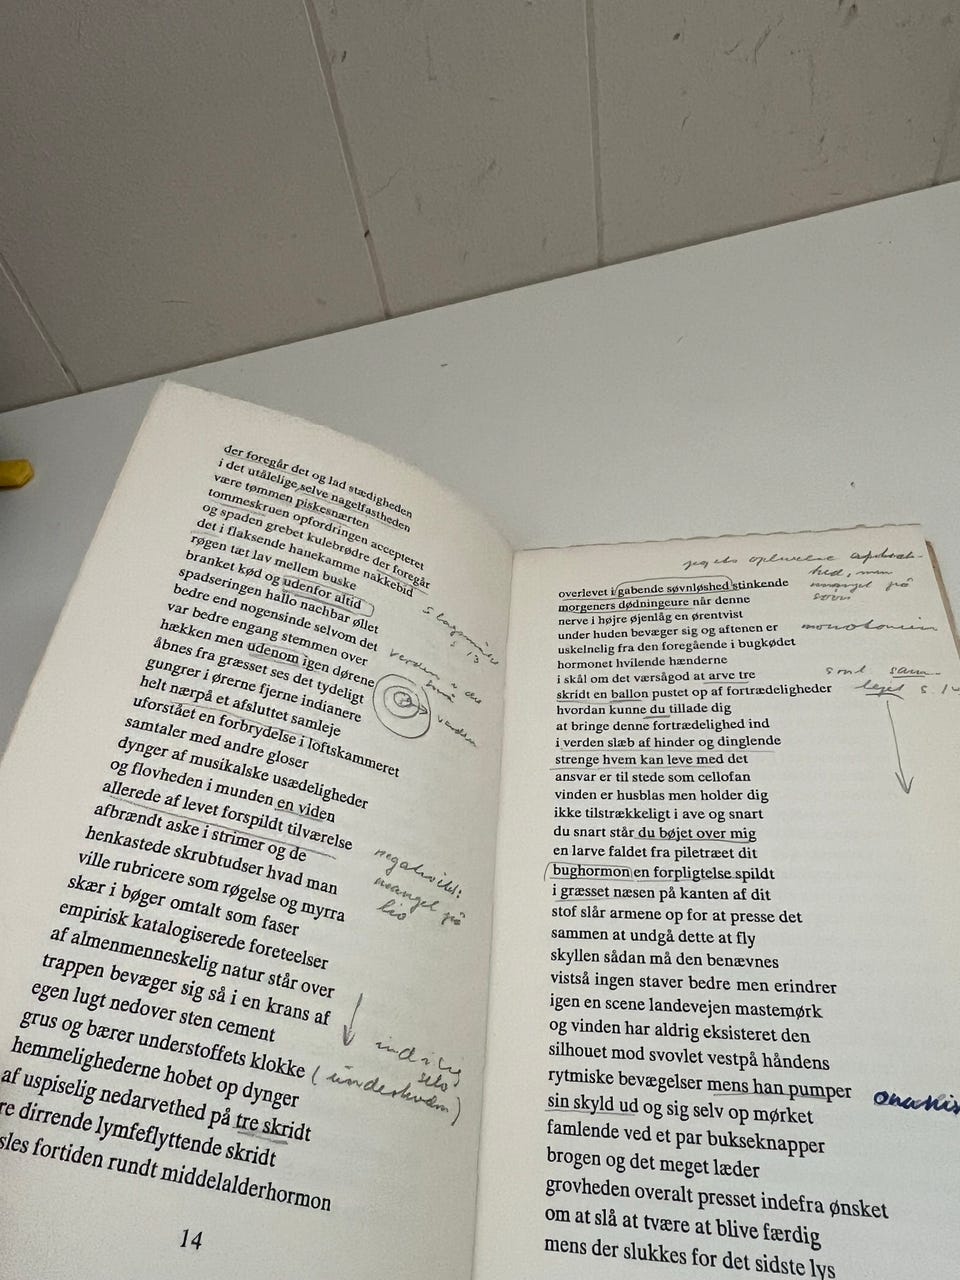 der foregår det og lad stædigheden
i det utålelige selve nagelfastheden
være tømmen piskesnærten
tommeskruen opfordringen accepteret
og spaden grebet kulebrødre der foregår
det i flaksende hanekamme nakkebid
røgen tæt lav mellem buske
branket kød og udenfor altid
spadseringen hallo nachbar øllet
bedre end nogensinde selvom det
var bedre engang stemmen over
hækken men udenom igen dørene
åbnes fra græsset ses det tydeligt
gungrer i ørerne fjerne indianere
helt nærpå et afsluttet samleje
uforstået en forbrydelse i loftskammeret
samtaler med andre gloser
dynger af musikalske usædeligheder
og flovheden i munden en viden
allerede af levet forspildt tilværelse
afbrændt aske i strimer og de
henkastede skrubtudser hvad man
ville rubricere som røgelse og myrra
skær i bøger omtalt som faser
empirisk katalogiserede foreteelser
af almenmenneskelig natur står over
trappen bevæger sig så i en krans af
egen lugt nedover sten cement
grus og bærer understoffets klokke
hemmelighederne hobet op dynger
af uspiselig nedarvethed på tre skridt
re dirrende lymfeflyttende skridt
sles fortiden rundt middelalderhormon
s 13
verden i den
små
verden
negativitet:
mangel på
liv
selv
14
jegets oplevelse
hed, men
mangel på
søvn
overlevet i gabende søvnløshed stinkende
morgeners dødningeure når denne
nerve i højre øjenlåg en ørentvist
under huden bevæger sig og aftenen er
uskelnelig fra den foregående i bugkødet
hormonet hvilende hænderne
i skål om det værsågod at arve tre
skridt en ballon pustet op af fortrædeligheder
hvordan kunne du tillade dig
at bringe denne fortrædelighed ind
i verden slæb af hinder og dinglende
strenge hvem kan leve med det
ansvar er til stede som cellofan
vinden er husblas men holder dig
ikke tilstrækkeligt i ave og snart
du snart står du bøjet over mig
en larve faldet fra piletræet dit
bughormon en forpligtelse spildt
i græsset næsen på kanten af dit
stof slår armene op for at presse det
sammen at undgå dette at fly
skyllen sådan må den benævnes
vistså ingen staver bedre men erindrer
igen en scene landevejen mastemørk
og vinden har aldrig eksisteret den
silhouet mod svovlet vestpå håndens
rytmiske bevægelser mens han pumper
sin skyld ud og sig selv op mørket
famlende ved et par bukseknapper
brogen og det meget læder
grovheden overalt presset indefra ønsket
om at slå at tvære at blive færdig
mens der slukkes for det sidste lys
monotonien
sml sam-
lejet s. 14
onanis